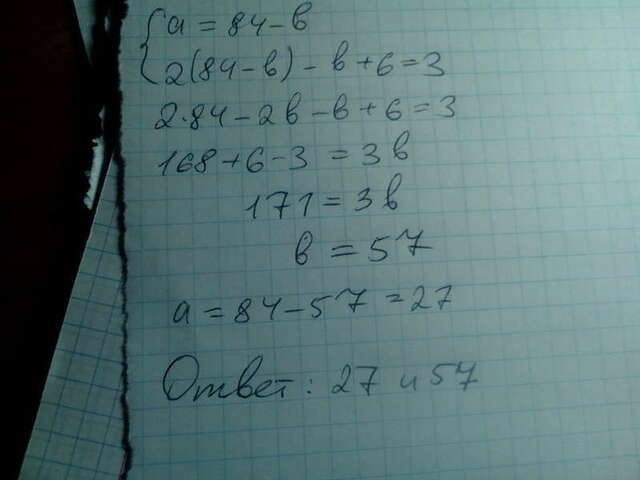 { a = 84 - в
2(84 - в) - в + 6 = 3
2·84 - 2в - в + 6 = 3
168 + 6 - 3 = 3в
171 = 3в
в = 57
а = 84 - 57 = 27
Ответ: 27 и 57